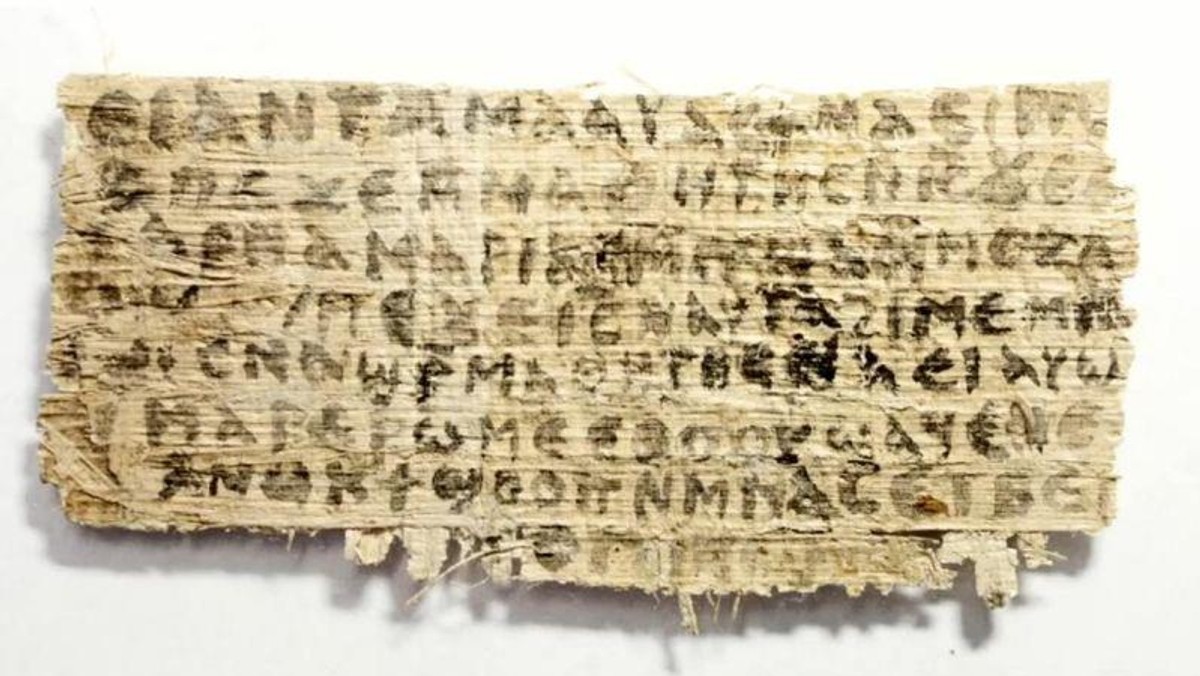 ⲉⲓ ⲁⲛ ⲧⲁⲙⲁⲁⲩ ⲁⲥϯ ⲛⲁⲉⲓ ⲡⲱ
ⲡⲉϫⲉ ⲙⲙⲁⲑⲏⲧⲏⲥ ⲛⲓⲥ ϫⲉ ⲥ
ⲁⲣⲛⲁ ⲙⲁⲣⲓⲁⲙ ⲙⲡϣⲁ ⲙⲙⲟⲥ ⲁ
ⲡⲉϫⲉ ⲓⲥ ⲛⲁⲩ ⲧⲁϩⲓⲙⲉ ⲙⲛ
ⲥⲛⲁϣⲣⲙⲁⲑⲏⲧⲏⲥ ⲛⲁⲉⲓ ⲁⲩⲱ
ⲙⲁⲣⲉⲣⲱⲙⲉ ⲉⲑⲟⲟⲩ ϣⲁϥⲉ ⲛⲉ
ⲁⲛⲟⲕ ϯϣⲟⲟⲡ ⲛⲙⲙⲁⲥ ⲉⲧⲃⲉ ⲡ